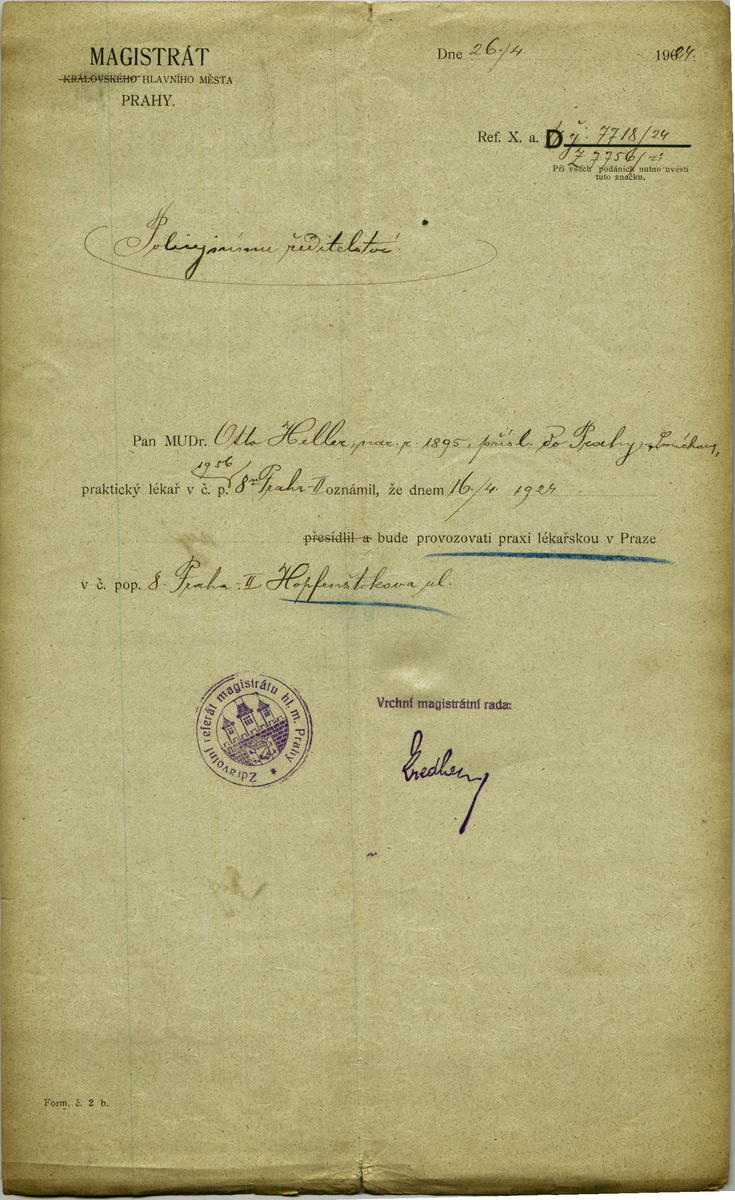 MAGISTRÁT
KRÁLOVSKÉHO HLAVNÍHO MĚSTA
PRAHY.
Dne 26./4. 1924.
Ref. X. a. D č. 7718/24
Z 7756/23
Při všech podáních nutno uvésti
tuto značku.
Policejnímu ředitelství.
Pan MUDr. Otto Heller, nar. r. 1895, přísl. do Prahy - Smíchova,
1956
praktický lékař v č. p. 8 Praha-II oznámil, že dnem 16./4. 1924
přesídlil a bude provozovati praxi lékařskou v Praze
v č. pop. 8. Praha-II Hopfenštokova ul.
Zdravotní referát magistrátu hl. m. Prahy
Vrchní magistrátní rada:
Form. č. 2 b.